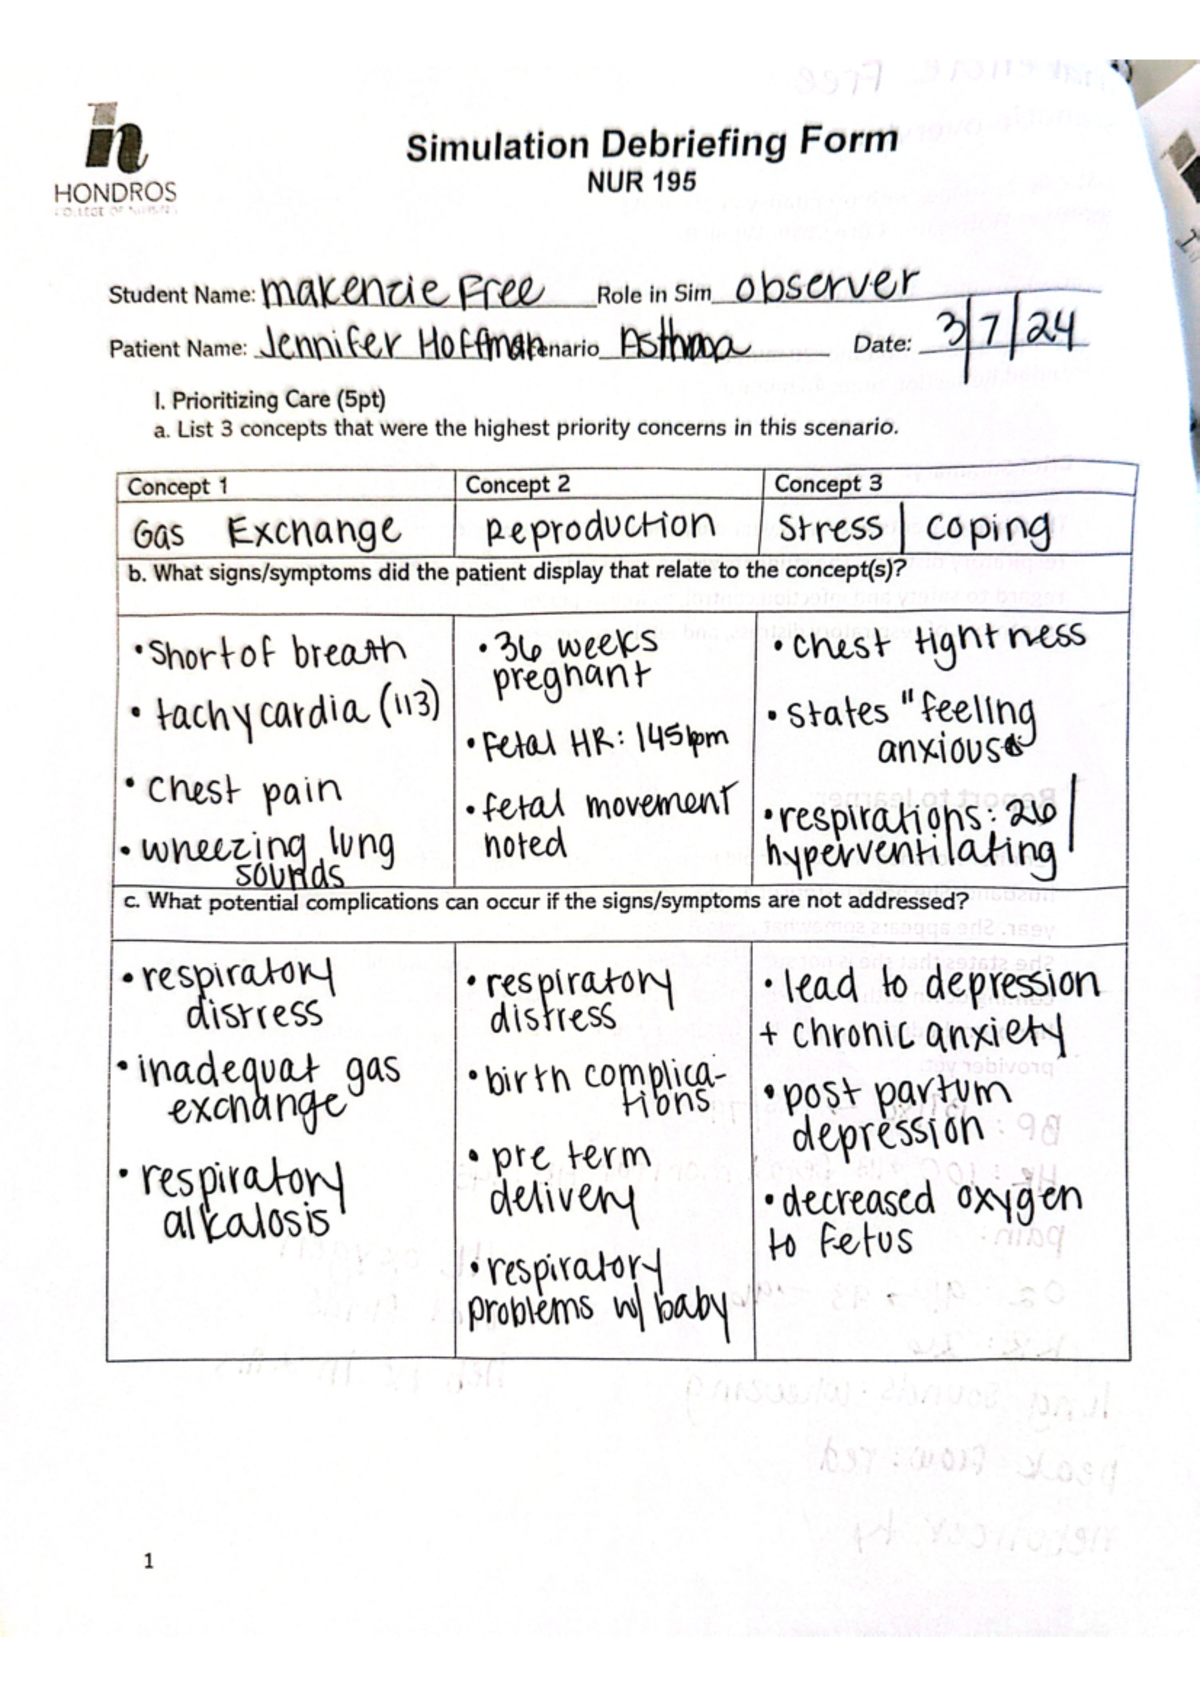 HONDROS
COLLEGE OF NURSING
Simulation Debriefing Form
NUR 195
Student Name: Makenzie Free Role in Sim observer
Patient Name: Jennifer Hoffman enario Asthma Date: 3/7/24
I. Prioritizing Care (5pt)
a. List 3 concepts that were the highest priority concerns in this scenario.
Concept 1 Concept 2 Concept 3
Gas Exchange Reproduction Stress | coping
b. What signs/symptoms did the patient display that relate to the concept(s)?
• Short of breath
• tachycardia (113)
• chest pain
• wheezing lung
sounds
• 36 weeks
pregnant
• Fetal HR: 145bpm
• fetal movement
noted
• chest tightness
• states "feeling
anxious"
• respirations: 26 |
hyperventilating
c. What potential complications can occur if the signs/symptoms are not addressed?
• respiratory
distress
• inadequat gas
exchange
• respiratory
alkalosis
• respiratory
distress
• birth complica-
tions
• pre term
delivery
• respiratory
problems w/ baby
• lead to depression
+ chronic anxiety
• post partum
depression
• decreased oxygen
to fetus
1